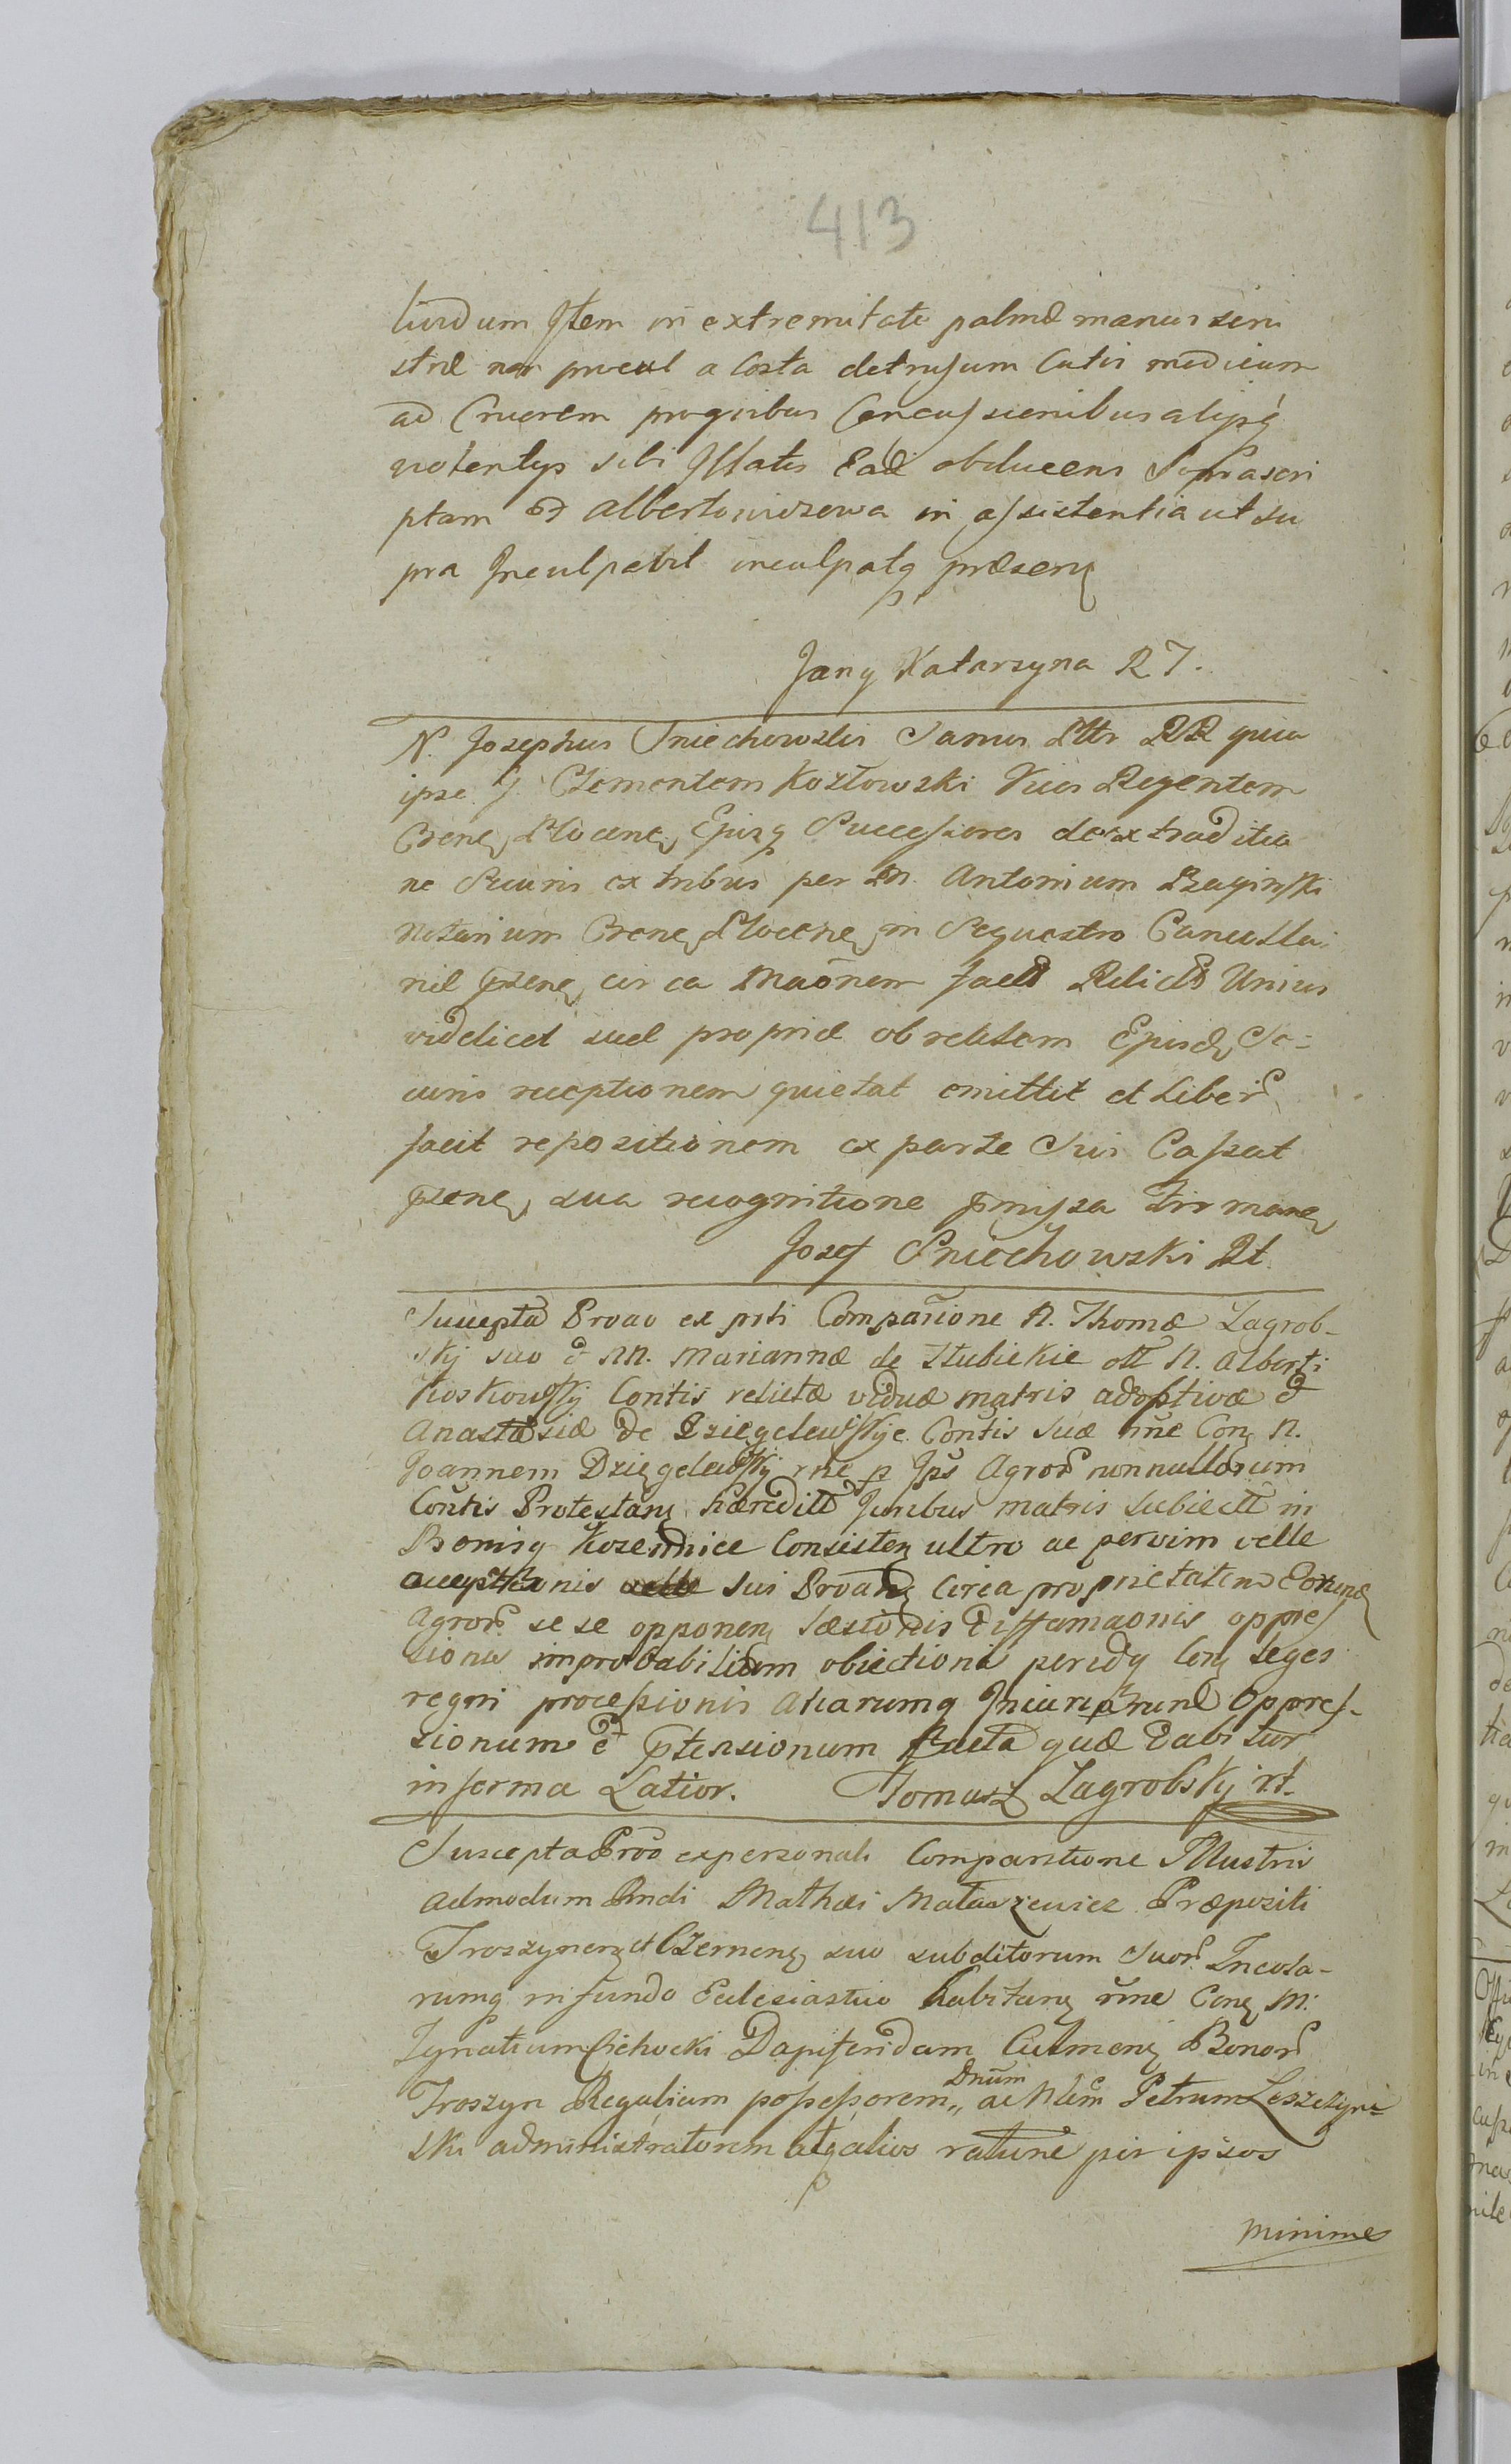 413
lividum Jtem in extremitate palmæ manus sini
stræ non procul a Costa detrusum Cutis medicum
ad Cruorem pro gribus Concussionibus alijsq
violentijs sibi Jllatis Eadē obducens Suprascri
ptam et Albertowiczowa in assistentia ut su
pra Jnculpabil inculpatq præsenȝ
Jany Katarzyna R T.
N. Josephus Sniechowski Sanus Mtte RR quia
ipse G. Clementem Kozłowski Vices Regentem
Crenȝ Plocenȝ Ejusq Successores de extraditio
ne Scuris ex tribus per M. Antonium Rzaginski
Notarium Crenȝ Plocenȝ in Sequestro Cancella
riæ pzenȝ circa Maōnem factæ Relictæ Unius
videlicet suæ propriæ ob relatam Ejusdȝ Se-
curis receptionem quietat omittit et Liberr
facit repositionem ex parte Sui Cassat
pzenȝ sua recognitione pmissa Firmanȝ
Josef Sniechowski Rt
Suscepta Proao ex prti Comparione N. Thomæ Zagrob-
skij suo et NN. Mariannæ de Słubickie ott N. Alberti
Koskowskij Contis relictæ viduæ matris adoptivæ et
Anastasiæ de Dziegelewskije Contis suæ nīne Conȝ N.
Joannem Dziegelewskij rne p Jps Agror nonnullorum
Contis Protestanȝ hæreditt Juribus matris Subiectt in
Bonisq Kozennice Consistenȝ ultro ac pervim velle
acceptionis sui Broanȝ Circa proprietatem Eorundȝ
Agror se se opponenȝ Læsionis Diffamaonis oppres
sionis improbabilium obiectionis peridq Conȝ leges
regni processionis Aliarumq Jniuriarum Oppres-
sionum et ptensionum facta quæ Dabitur
in forma Latior. Tomasz Zagrobskij rt.
Suscepta Proo expersonali Comparitione Illustris
Admodum Rndi Mathæi Mataszewicz Præpositi
Troszynenȝ et Czernenȝ suo subditorum Suor Incola-
rumq in fundo Eclesiastico habitanȝ nīne Conȝ M:
Ignatium Cichocki Dapiferidam Culmenȝ Bonor
Troszyn Regalium possessorem „ Dnum ac Nlem Petrum Leszczyni-
ski administratorem atq alios ratione per ipsos
minime